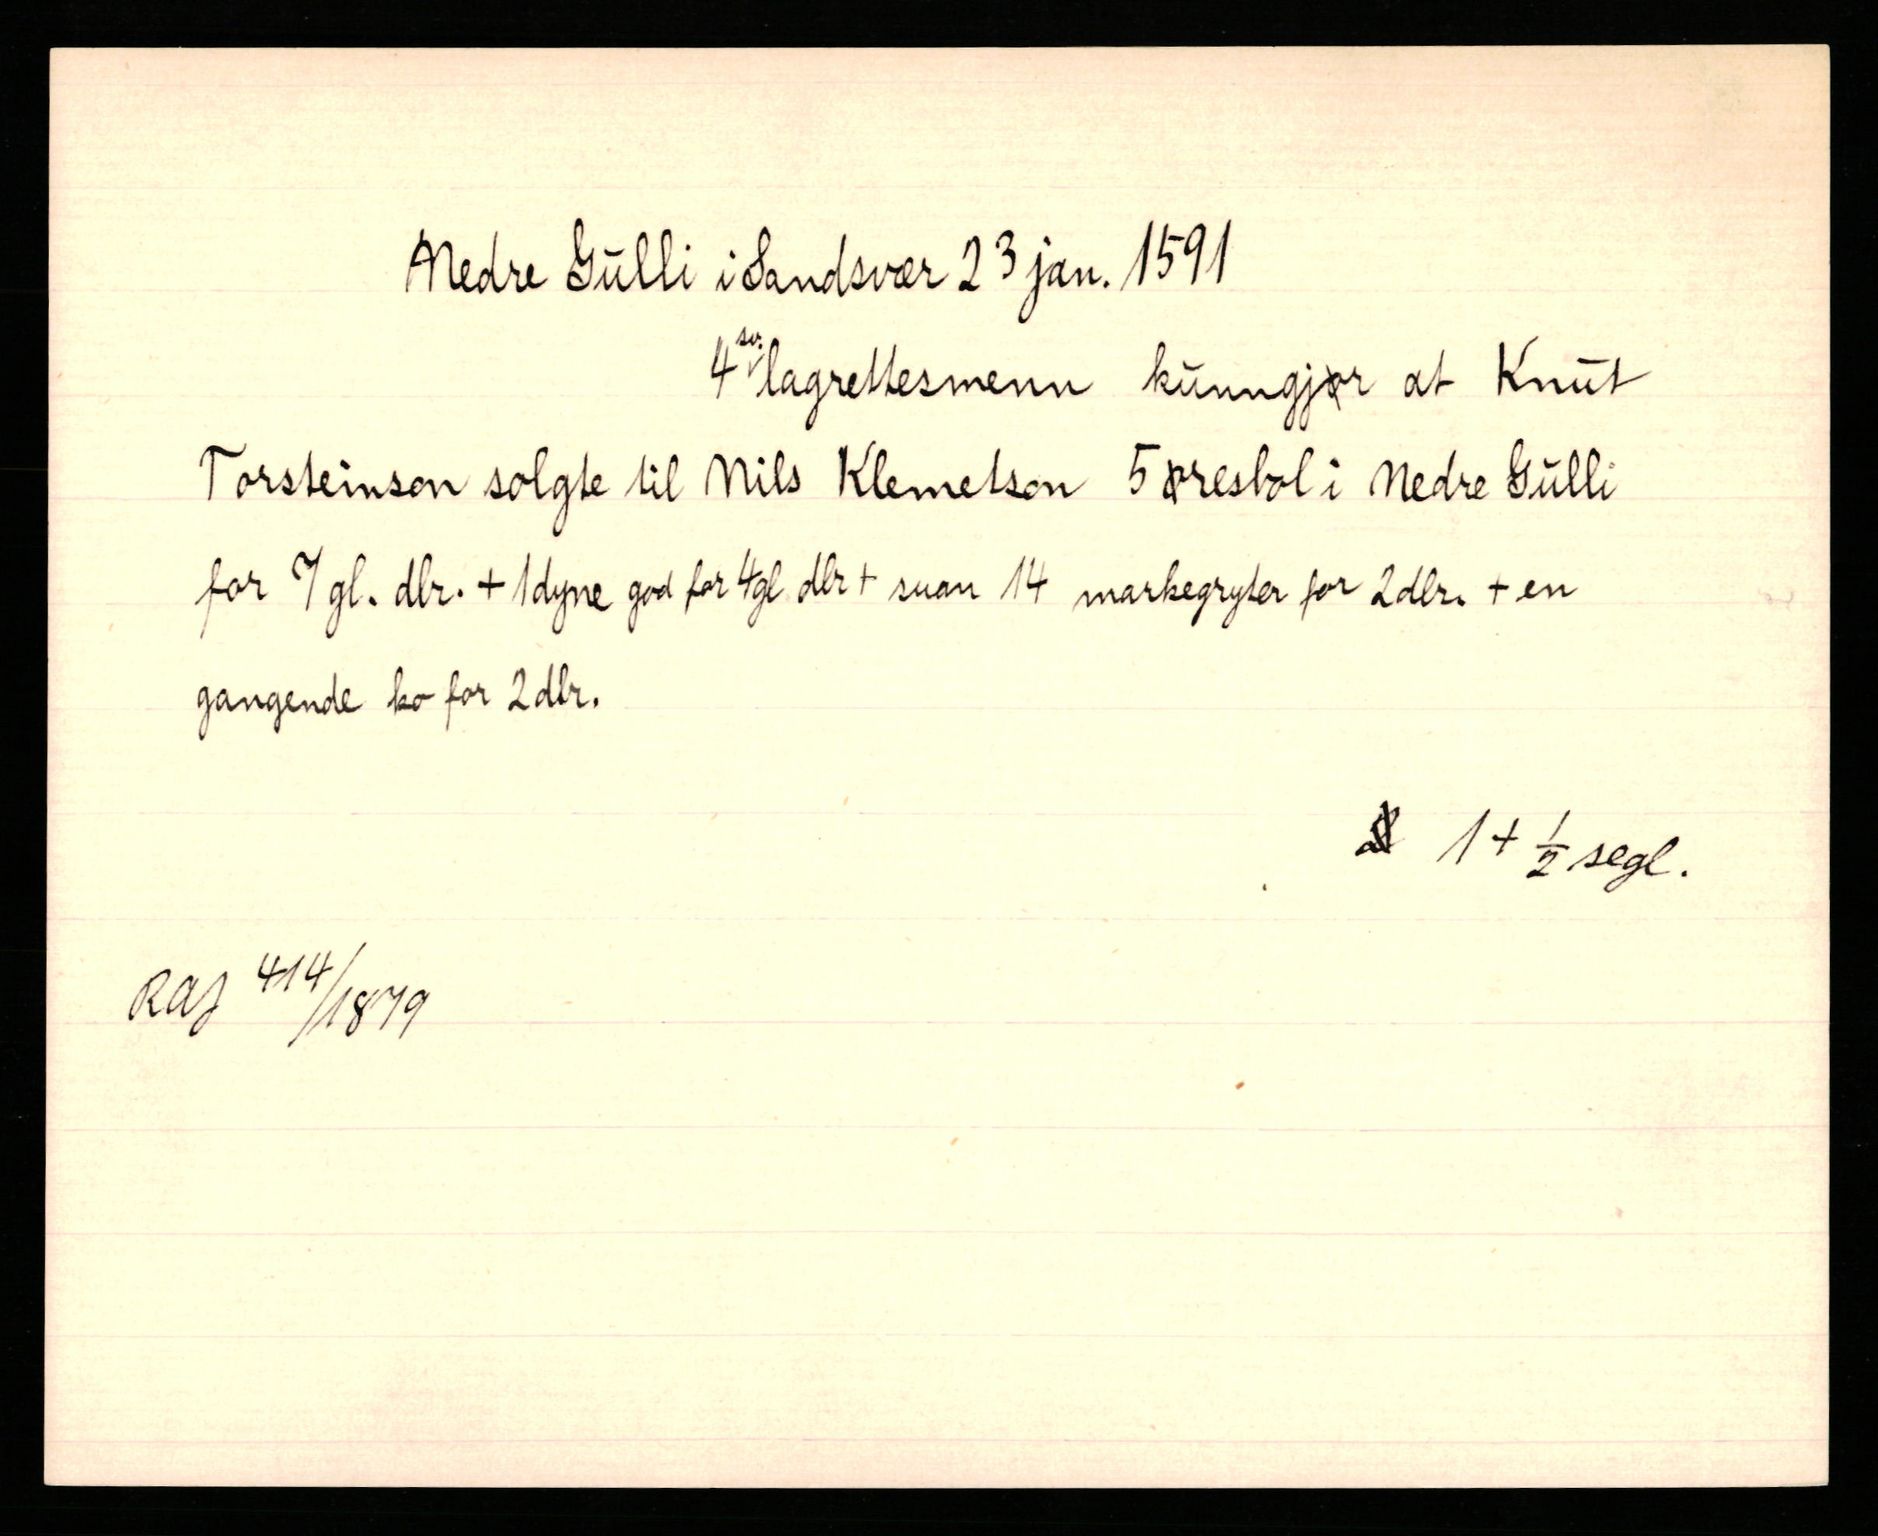 Nedre Gulli i Sandsvær 23 jan. 1591
4 sv. lagrettesmenn kunngjør at Knut
Torsteinson solgte til Nils Klemetson 5 øresbol i Nedre Gulli
for 7 gl. dlr. + 1 dyne god for 4 gl dlr + suan 14 markegryter for 2 dlr. + en
gangende ko for 2 dlr.
1 + 1/2 segl.
RAJ 414/1879